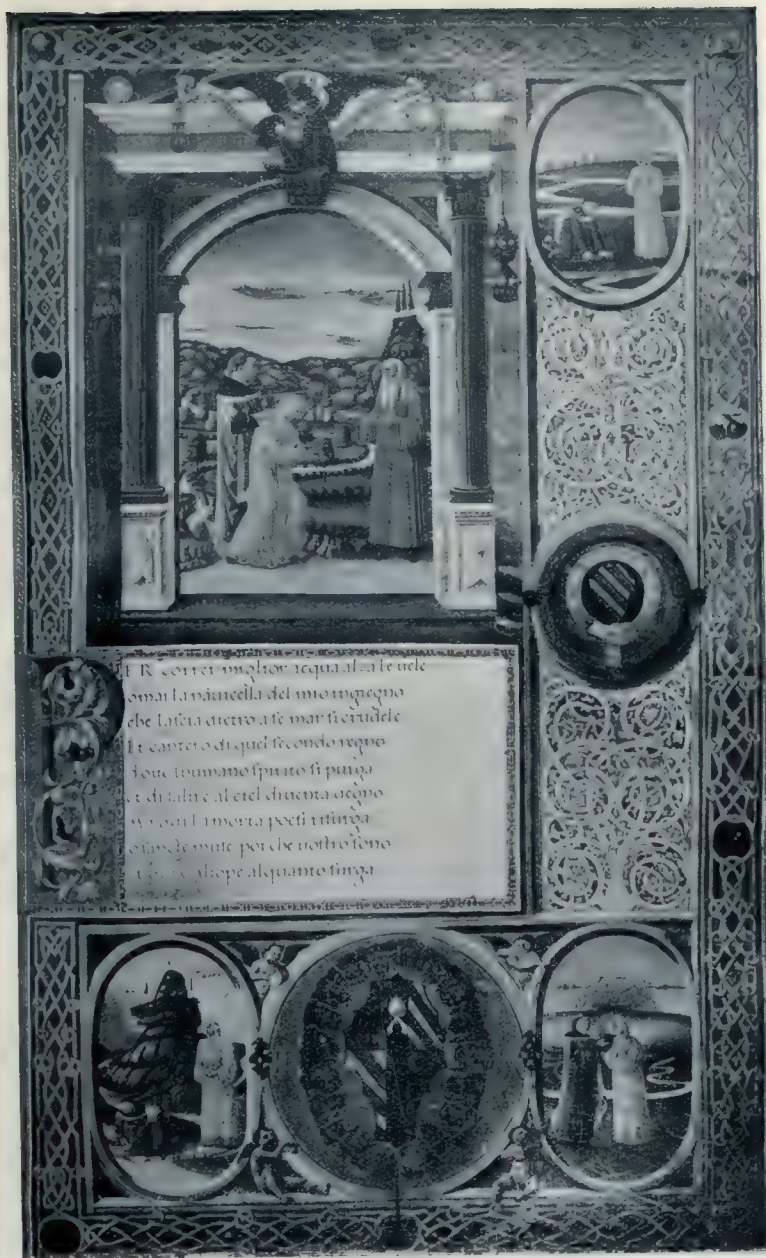 ER correr miglior acqua alza le uele
omai la nauicella del mio ingegno
che lascia dietro a se mar si crudele
Et cantero di quel secondo regno
doue lhumano spirito si purga
et di salire al ciel diuenta degno
la morta poesi risurga
o sancte muse poi che uostro sono
caliope alquanto surga